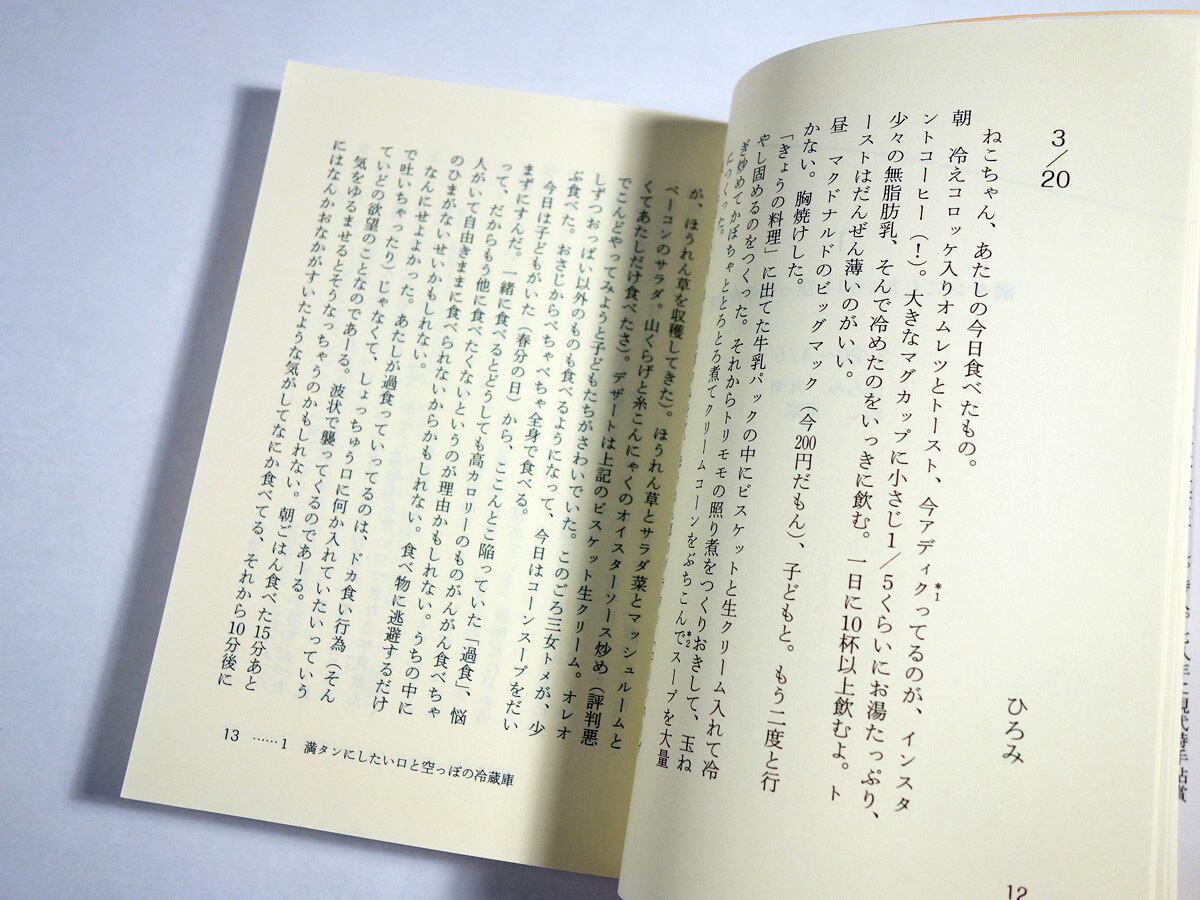 3/20
ひろみ
ねこちゃん、あたしの今日食べたもの。
朝　冷えコロッケ入りオムレツとトースト、今アディクってるのが、インスタ
*1
ントコーヒー（！）。大きなマグカップに小さじ1/5くらいにお湯たっぷり、
少々の無脂肪乳、そんで冷めたのをいっきに飲む。一日に10杯以上飲むよ。ト
ーストはだんぜん薄いのがいい。
昼　マクドナルドのビッグマック（今200円だもん）、子どもと。もう二度と行
かない。胸焼けした。
「きょうの料理」に出てた牛乳パックの中にビスケットと生クリーム入れて冷
やし固めるのをつくった。それからトリモモの照り煮をつくりおきして、玉ね
ぎ炒めてかぼちゃととろとろ煮てクリームコーンをぶちこんでスープを大量
*2
につくった。
12
が、ほうれん草を収穫してきた）。ほうれん草とサラダ菜とマッシュルームと
ベーコンのサラダ。山くらげと糸こんにゃくのオイスターソース炒め（評判悪
くてあたしだけ食べたさ）。デザートは上記のビスケット生クリーム。オレオ
でこんどやってみようと子どもたちがさわいでいた。このごろ三女トメが、少
しずつおっぱい以外のものも食べるようになって、今日はコーンスープをだい
ぶ食べた。おさじからべちゃべちゃ全身で食べる。
今日は子どもがいた（春分の日）から、ここんとこ陥っていた「過食」、悩
まずにすんだ。一緒に食べるとどうしても高カロリーのものががんがん食べちゃ
って、だからもう他に食べたくないというのが理由かもしれない。うちの中に
人がいて自由きままに食べられないからかもしれない。食べ物に逃避するだけ
のひまがないせいかもしれない。
なんにせよよかった。あたしが過食っていってるのは、ドカ食い行為（そん
で吐いちゃったり）じゃなくて、しょっちゅう口に何か入れていたいっていう
ていどの欲望のことなのであーる。波状で襲ってくるのであーる。
気をゆるませるとそうなっちゃうのかもしれない。朝ごはん食べた15分あと
にはなんかおなかがすいたような気がしてなにか食べてる、それから10分後に
13 ……1　満タンにしたい口と空っぽの冷蔵庫